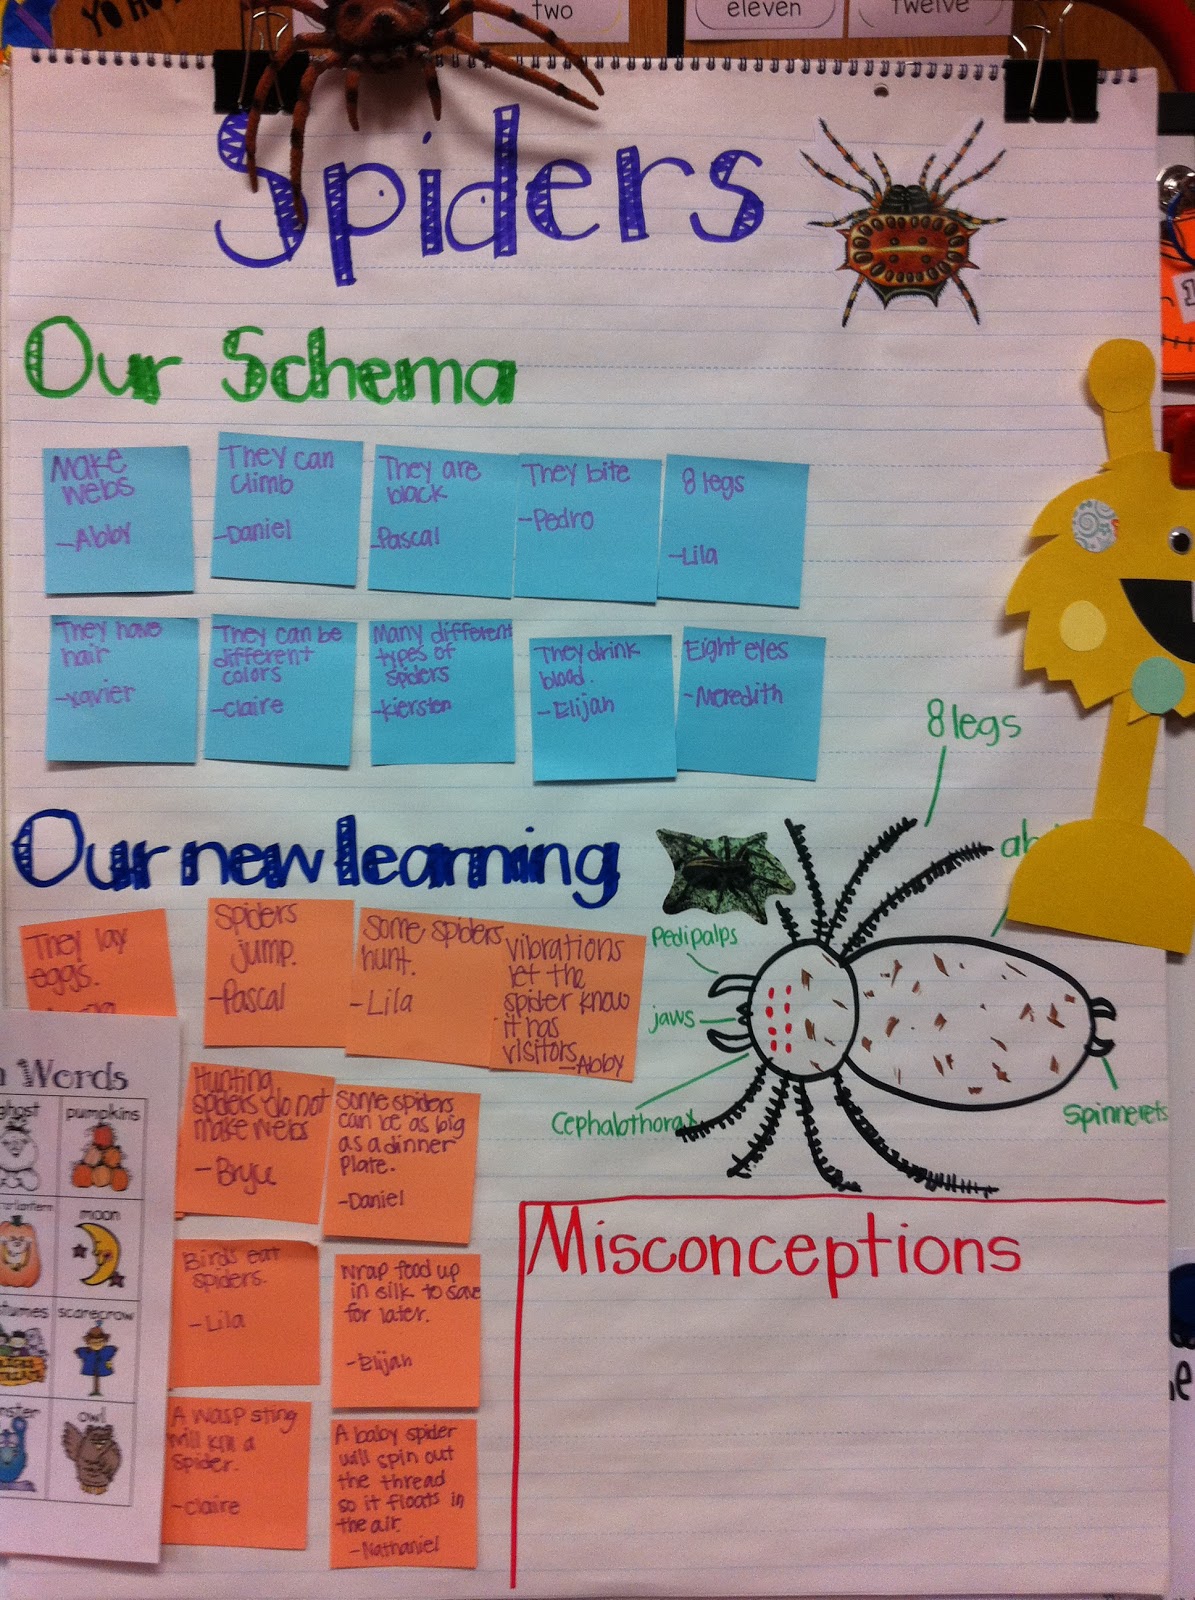 two
eleven
twelve
Spiders
Our Schema
Make
webs
-Abby
They can
climb
-Daniel
They are
black
-Pascal
They bite
-Pedro
8 legs
-Lila
They have
hair
-Xavier
They can be
different
colors
-Claire
Many different
types of
spiders
-Kiersten
They drink
blood.
-Elijah
Eight eyes
-Meredith
8 legs
Our new learning
They lay
eggs.
Spiders
jump.
-Pascal
Some spiders
hunt.
-Lila
Vibrations
let the
spider know
it has
visitors
-Abby
Pedipalps
jaws
Cephalothorax
Spinnerets
Hunting
spiders do not
make webs
-Bryce
Some spiders
can be as big
as a dinner
plate.
-Daniel
Birds eat
spiders.
-Lila
Wrap food up
in silk to save
for later.
-Elijah
A wasp sting
will kill a
spider.
-Claire
A baby spider
will spin out
the thread
so it floats in
the air.
-Nathaniel
Misconceptions
Words
ghost
pumpkins
moon
scarecrow
owl